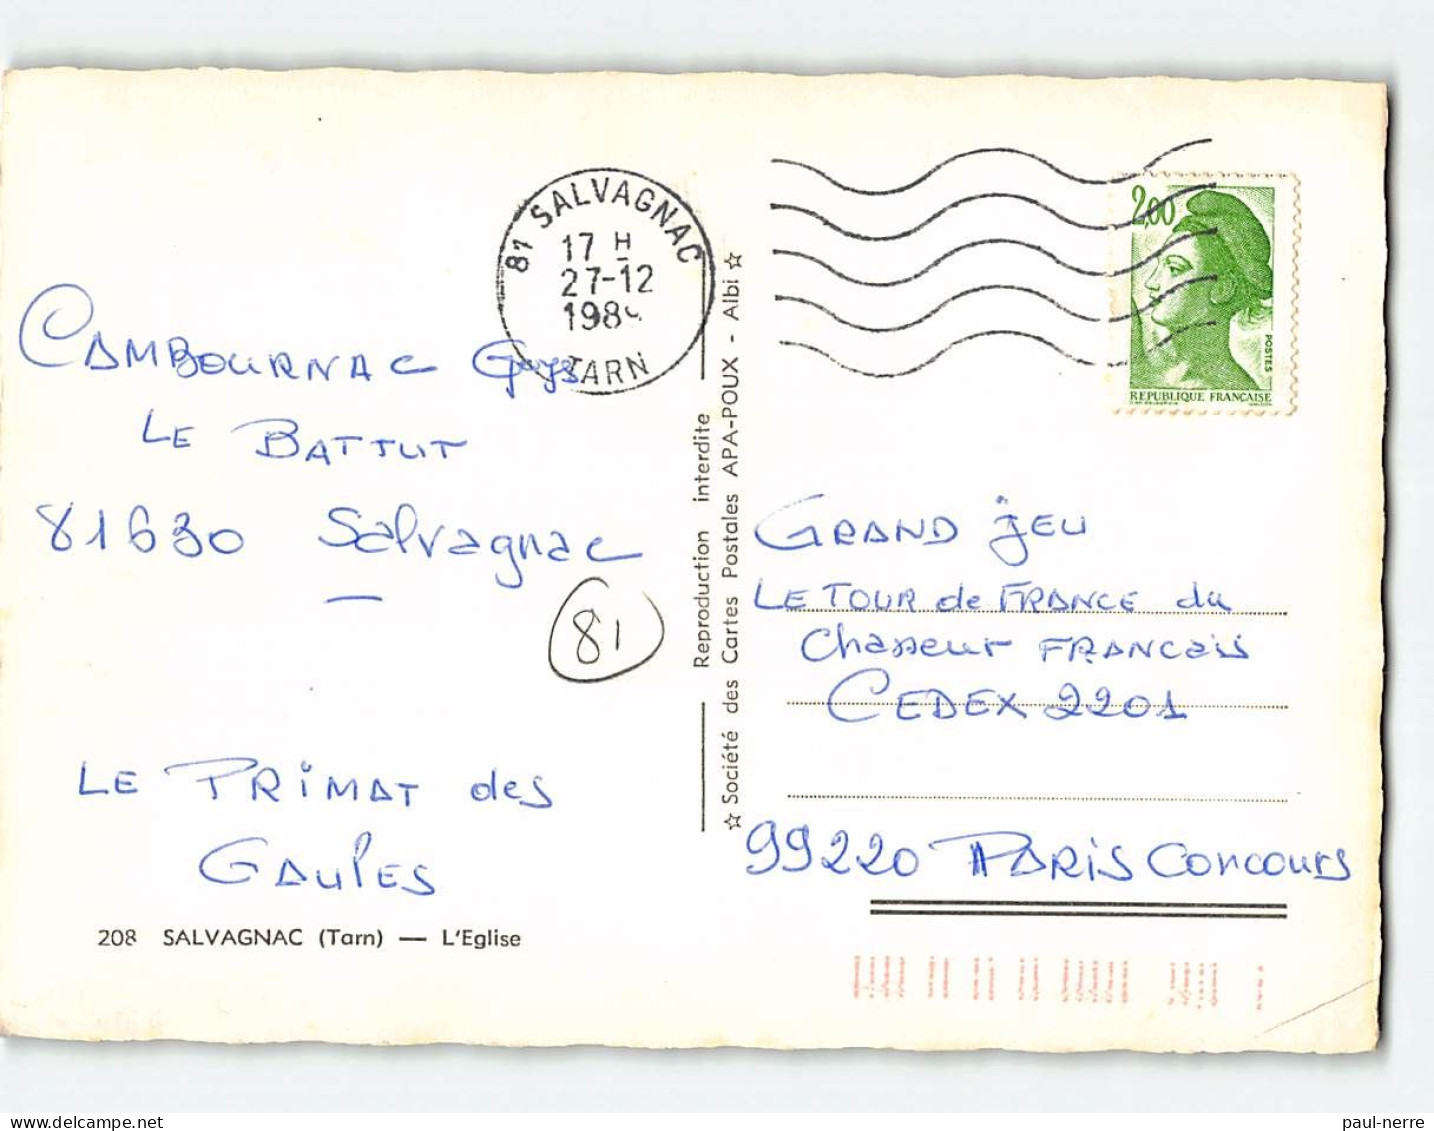 81 SALVAGNAC
17 H
27-12
TARN
2,00
POSTES
REPUBLIQUE FRANÇAISE
CAMBOURNAC Guys
LE BATTUT
81630 Salvagnac
81
LE PRIMAT des
GAULES
208 SALVAGNAC (Tarn) — L'Eglise
Reproduction interdite
☆ Société des Cartes Postales APA-POUX - Albi ☆
GRAND JEU
LE TOUR de FRANCE du
Chasseur FRANCAIS
CEDEX 2201
99220 PARIS Concours
paul-nerre